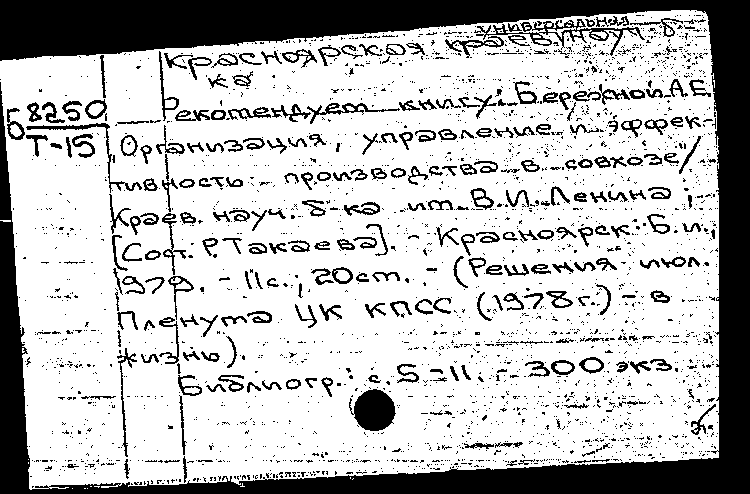 универсальная
Красноярская краев. науч. б-
ка
Б 8250
Т-15
Рекомендует книгу: Бережной А.Е.
"Организация, управление и эффек-
тивность производства в совхозе"/
Краев. науч. б-ка им. В.И. Ленина;
[Сост. Р. Такаева]. - Красноярск: Б.и.,
1979. - 11с.; 20см. - (Решения июл.
Пленума ЦК КПСС (1978г.) - в
жизнь).
Библиогр.: с. 5-11. - 300 экз.